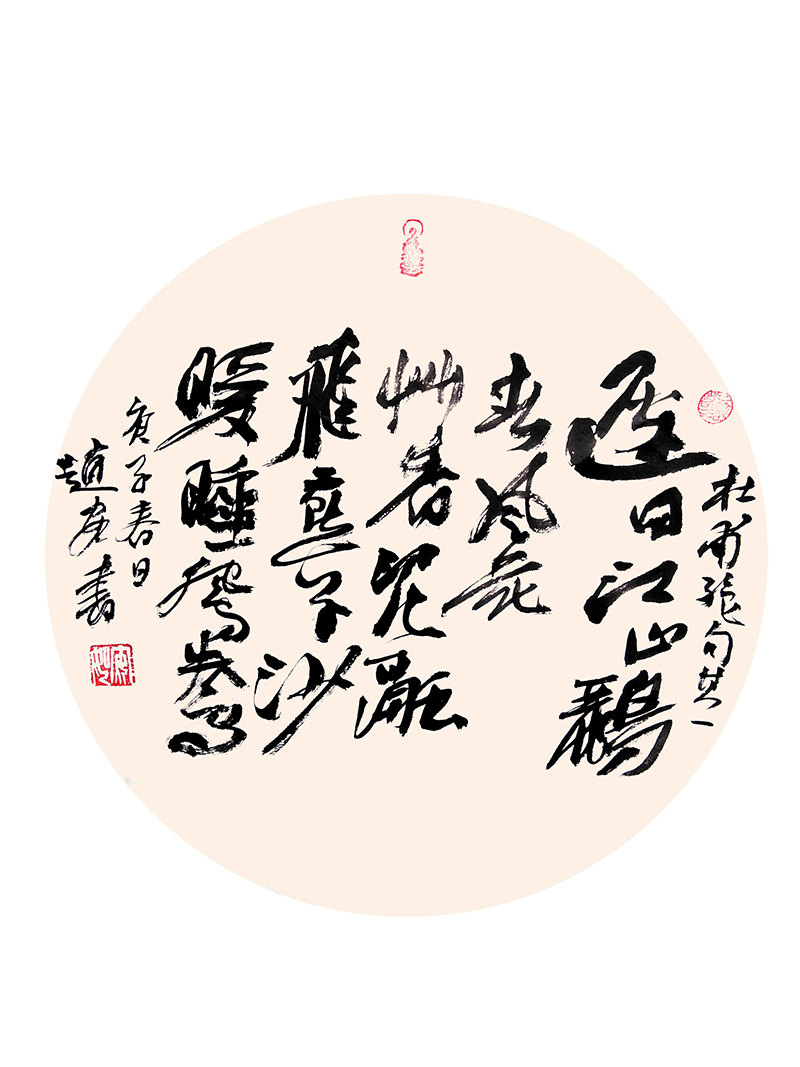 杜甫絶句其一
遲日江山麗
春風花
艸香泥融
飛燕子沙
暖睡鴛鴦
庚子春日
趙書